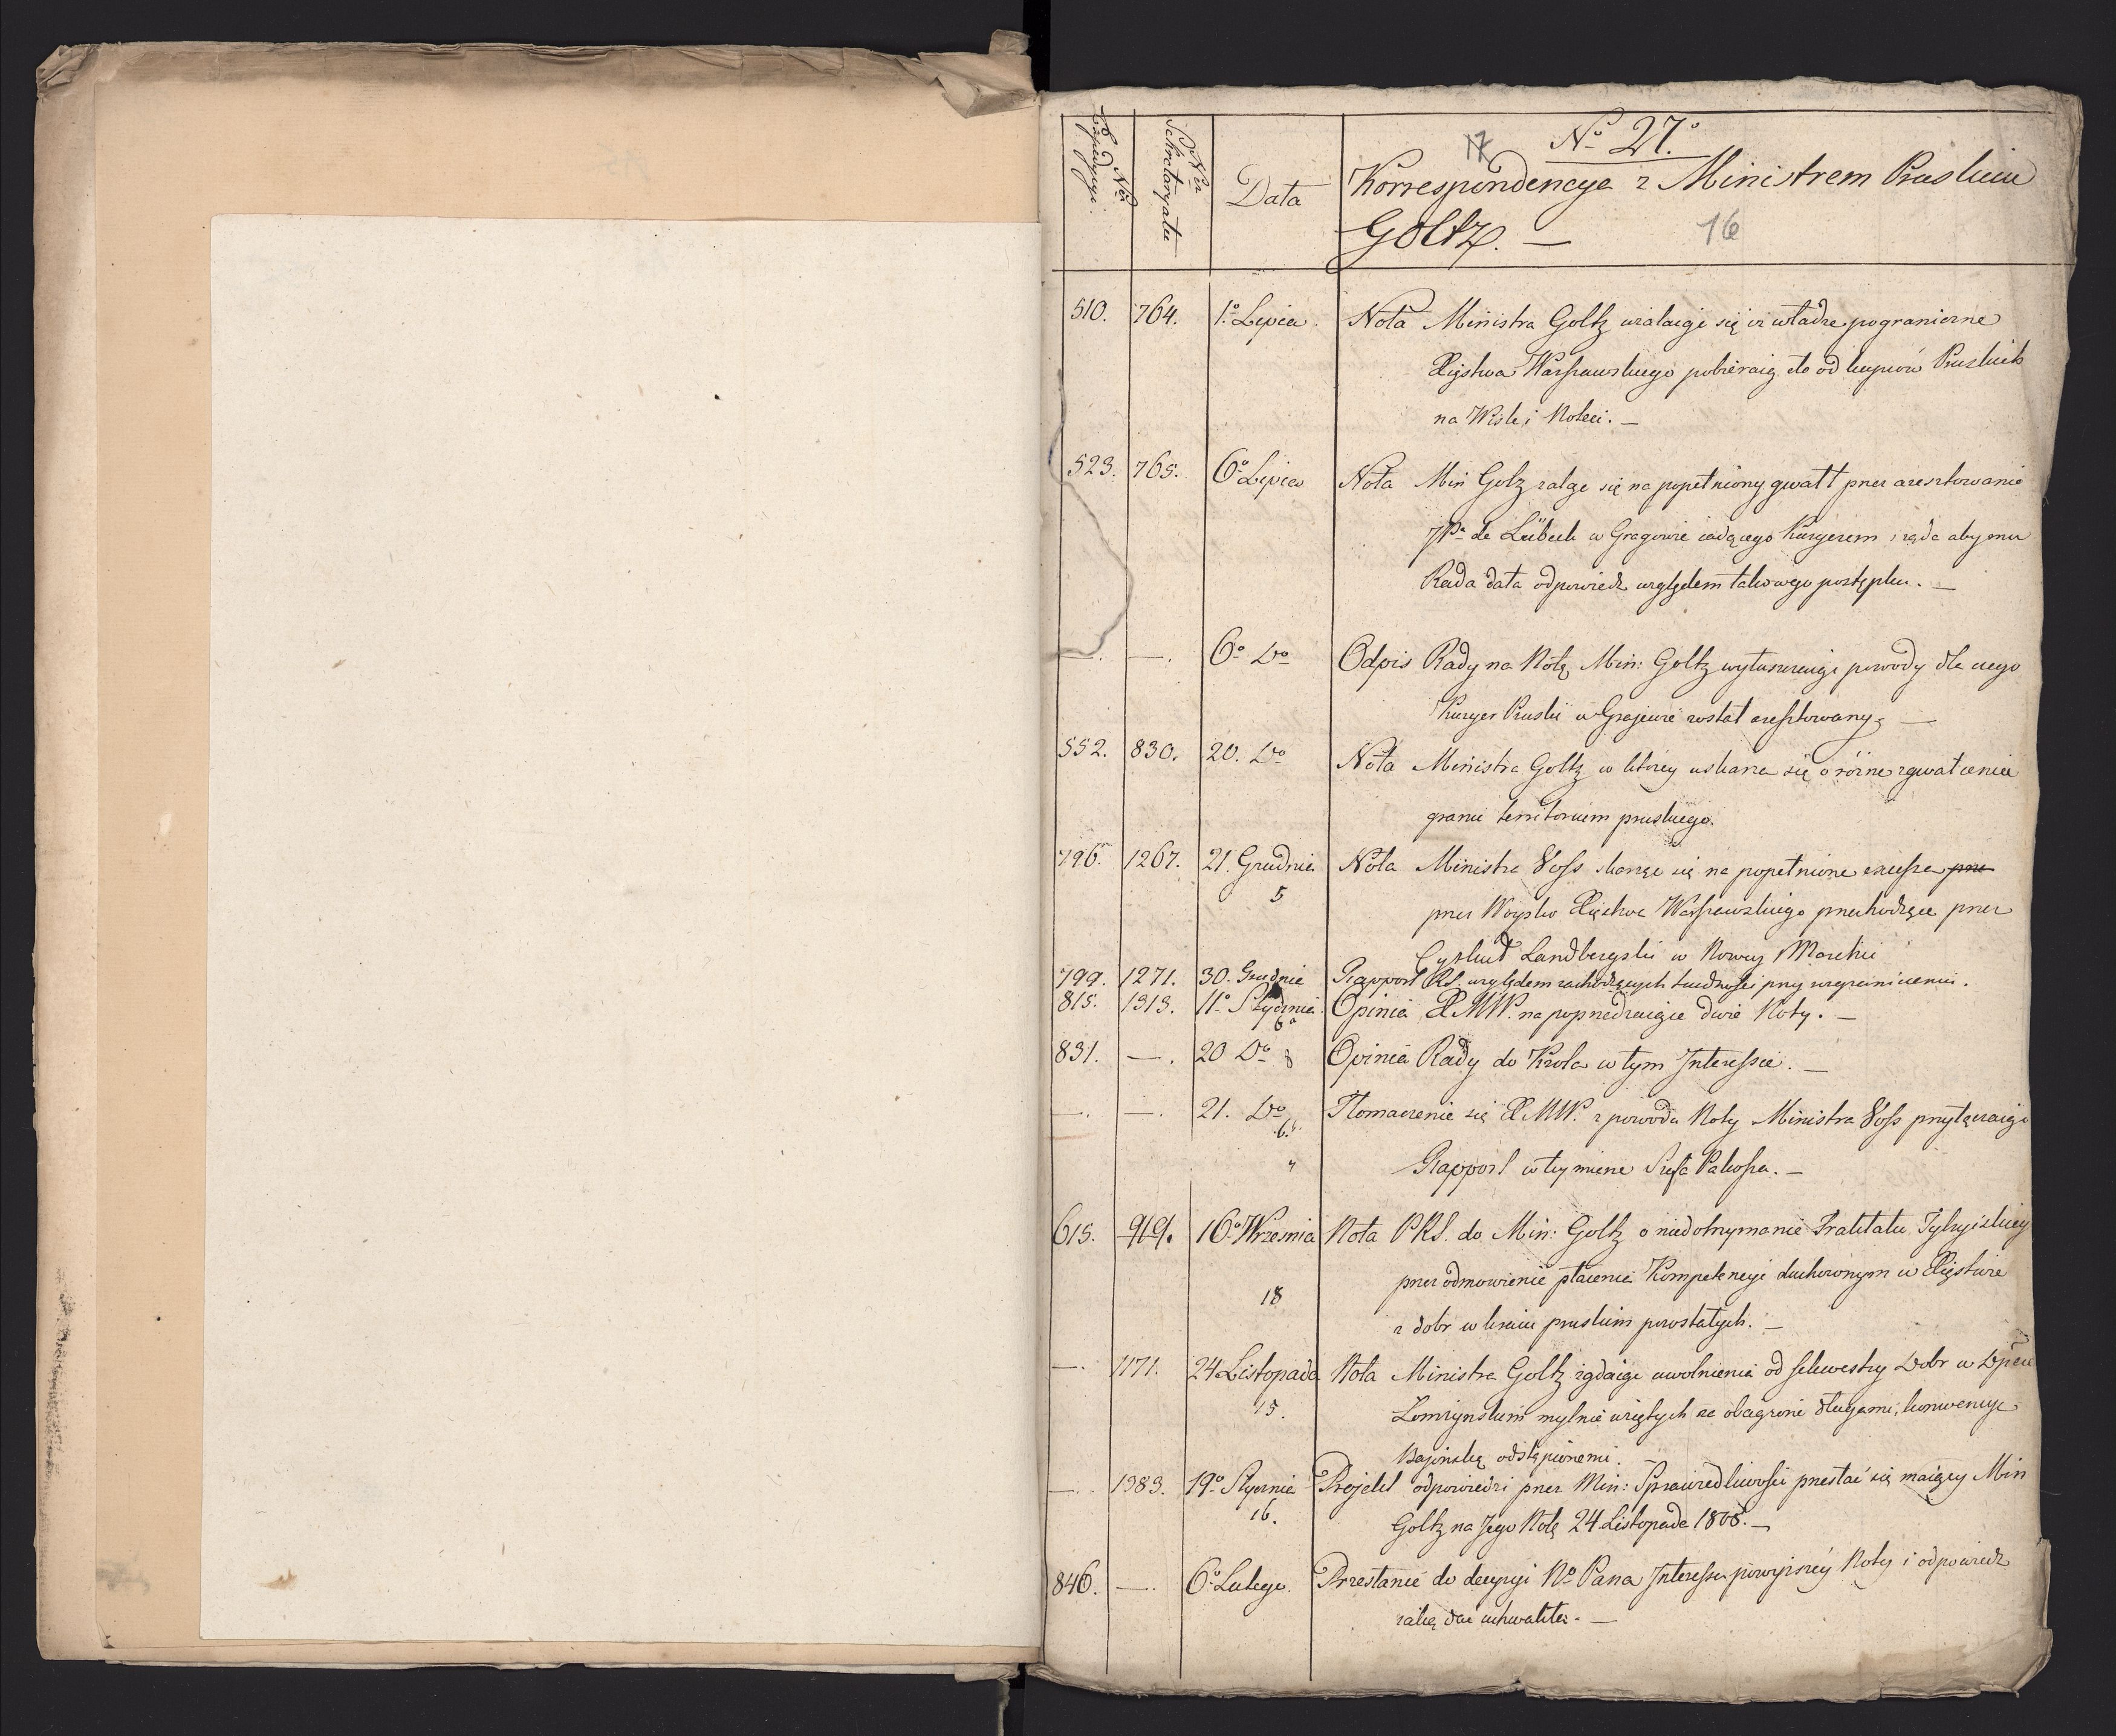 Nro Expedycyi.
Nro Sekretaryatu
Data
17
No 27o
Korrespondencya z Ministrem Pruskim
Goltz. —
16
510. 764. 1o Lipca. Nota Ministra Goltz uzalaiąc się iż władze pograniczne
Xięstwa Warszawskiego pobieraią cło od kupców Pruskich
na Wiśle i Noteci. —
523. 765. 6o Lipca Nota Min Golz zaląc się na popełniony gwałt przez aresztowanie
JPa de Lübeck w Gragowie iadącego Kuryerem i ząda aby mu
Rada dała odpowiedz względem takowego postępku. —
—. —. 6o Do Odpis Rady na Notę Min: Goltz wyłuszczaiąc powody dla czego
Kuryer Pruski w Grajewie został aresztowany. —
552. 830. 20. Do Nota Ministra Goltz w ktorey uskarza się o rózne zgwałcenia
granic territorium pruskiego.
796. 1267. 21. Grudnia Nota Ministra Voss skarząc się na popełnione excessa prze
5 przez Woysko Xięstwa Warszawskiego przechodzące przez
Cyrkuł Landbergski w Nowey Marchii
799. 1271. 30. Grudnia Rapport RS. względem zachodzących trudności przy rozgraniczeniu.
815. 1313. 11o Stycznia Opinia XMW. na poprzedzaiące dwie Noty. —
6a
831. —. 20 Do 8 Opinia Rady do Krola w tym Interessie. —
—. —. 21. Do Tłomaczenie się XMW. z powodu Noty Ministra Voss przyłączaiąc
6.b.
" Rapport w tey mierze Szefa Pakosza. —
615. 919. 16o Września Nota PRS. do Min: Goltz o niedotrzymanie Traktatu Tylzyckiey
18 przez odmowienie płacenia Kompetencyi duchownym w Xięstwie
z dobr w kraiu pruskim pozostałych. —
—. 1171. 24 Listopada Nota Ministra Goltz ządaiąc uwolnienia od sekwestry Dobr w Dpcie
15. Łomzynskim mylnie wziętych za obciązone długami, konwencyą
Bajonską odstąpionemi. —
—. 1383. 19o Stycznia Projekt odpowiedzi przez Min: Sprawiedliwości przesłać się maiącey Min
16. Goltz na Jego Notę 24 Listopada 1808. —
846. —. 6o Lutego. Przesłanie do decyzyi No Pana Interessu powyzszey Noty i odpowiedz
iaką dać uchwaliła. —